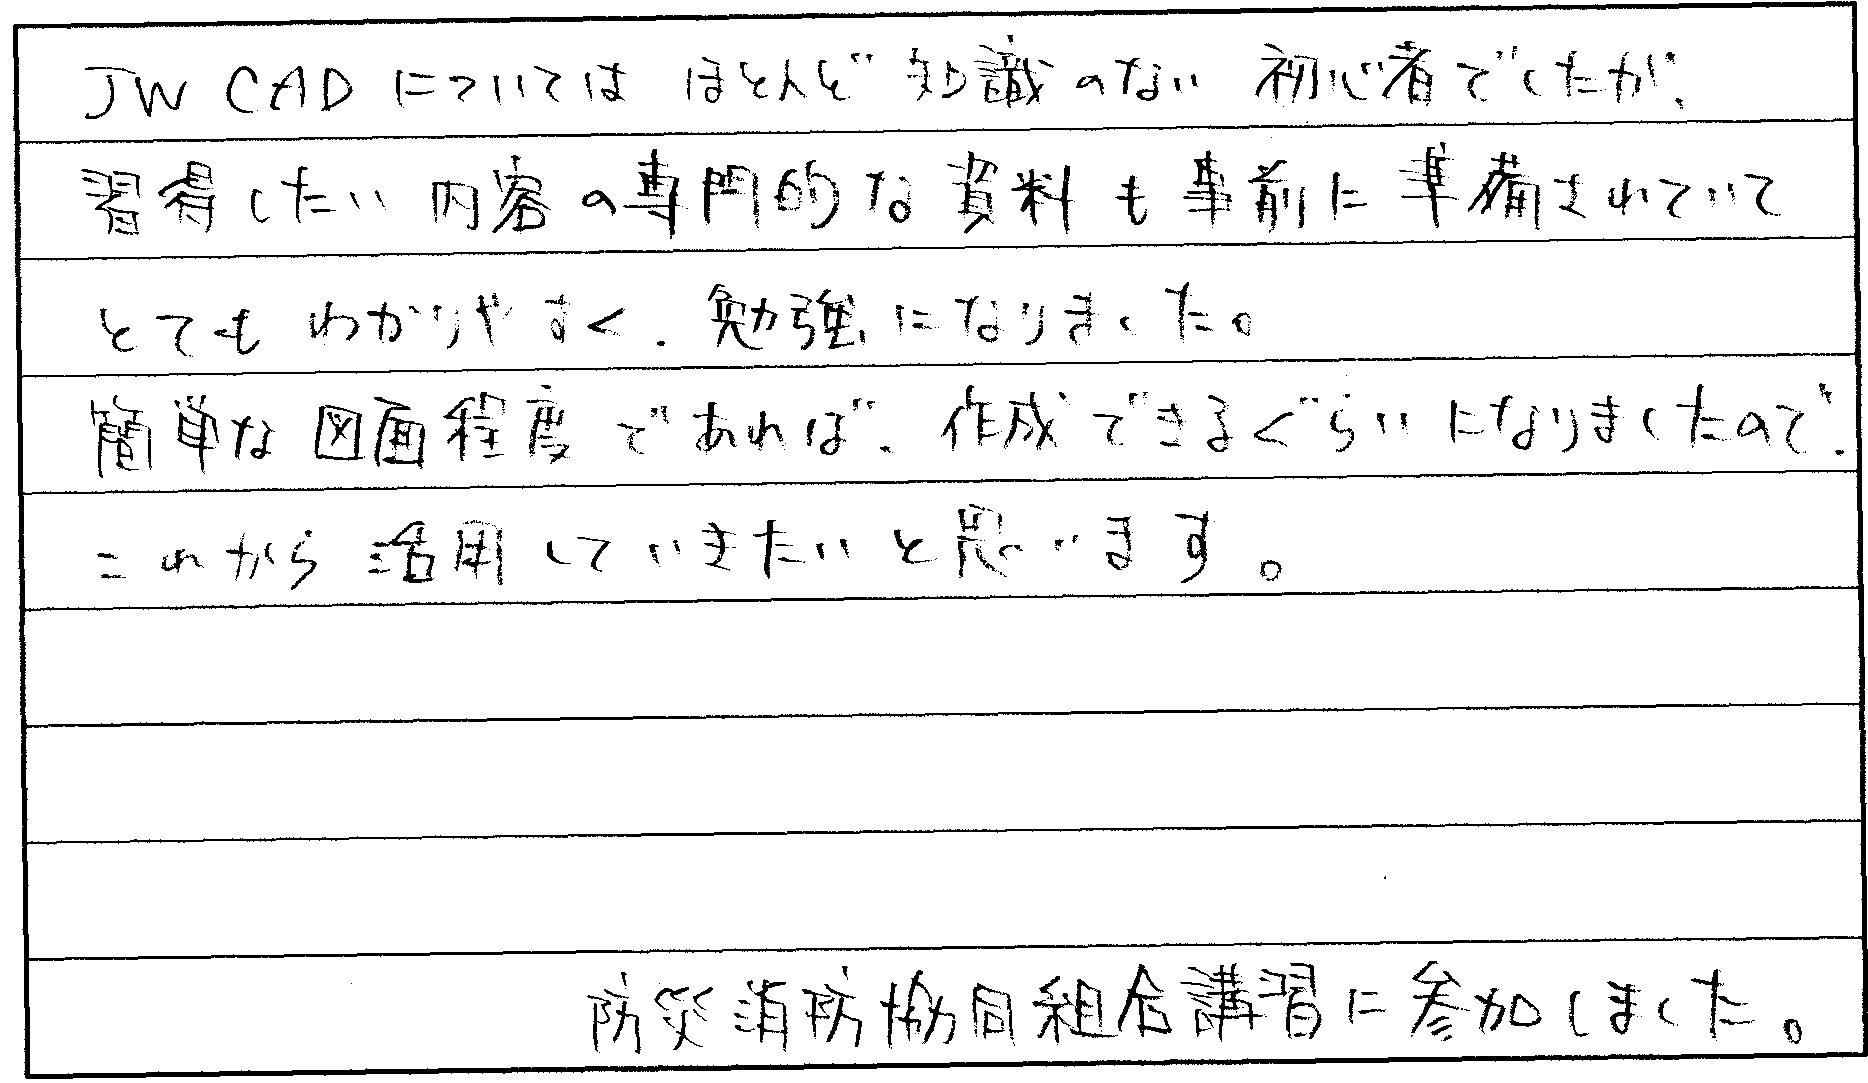 JW CADについては ほとんど 知識のない 初心者でしたが、
習得したい 内容の専門的な資料も事前に準備されていて
とても わかりやすく、勉強になりました。
簡単な図面程度であれば、作成できるぐらいになりましたので、
これから活用していきたいと思います。
防災消防協同組合講習に参加しました。